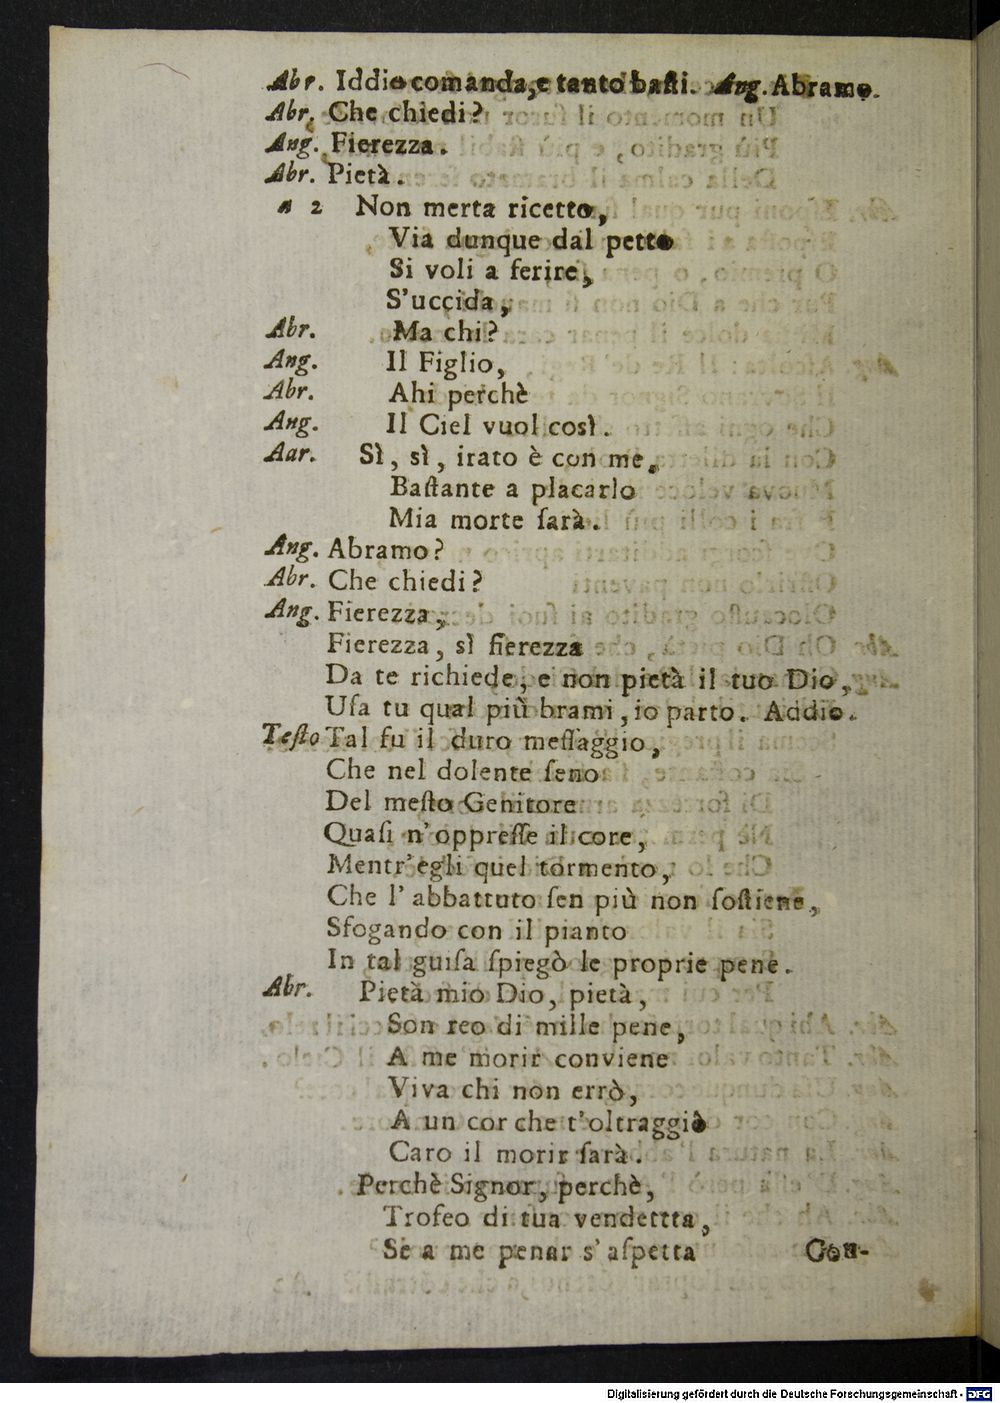 Abr. Iddio comanda, e tanto baſti. Ang. Abramo.
Abr. Che chiedi?
Ang. Fierezza.
Abr. Pietà.
a 2 Non merta ricetto,
Via dunque dal petto
Si voli a ferire,
S'uccida,
Abr. Ma chi?
Ang. Il Figlio,
Abr. Ahi perchè
Ang. Il Ciel vuol così.
Aar. Sì, sì, irato è con me,
Baſtante a placarlo
Mia morte ſarà.
Ang. Abramo?
Abr. Che chiedi?
Ang. Fierezza,
Fierezza, sì fierezza
Da te richiede, e non pietà il tuo Dio,
Uſa tu qual più brami, io parto. Addio.
Teſto Tal fu il duro meſſaggio,
Che nel dolente ſeno
Del meſto Genitore
Quaſi n'oppreſſe il core,
Mentr'egli quel tormento,
Che l'abbattuto ſen più non ſoſtiene,
Sfogando con il pianto
In tal guiſa ſpiegò le proprie pene.
Abr. Pietà mio Dio, pietà,
Son reo di mille pene,
A me morir conviene
Viva chi non errò,
A un cor che t'oltraggiò
Caro il morir ſarà.
Perchè Signor, perchè,
Trofeo di tua vendettta,
Se a me penar s'aſpetta
Con-
Digitalisierung gefördert durch die Deutsche Forschungsgemeinschaft - DFG